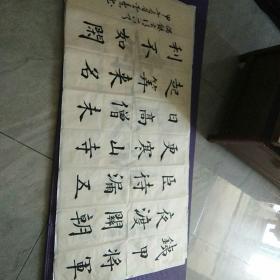 鐵甲將軍
夜渡關朝
臣待漏五
更寒山寺
日高僧未
起算来名
利不如閑
甲午